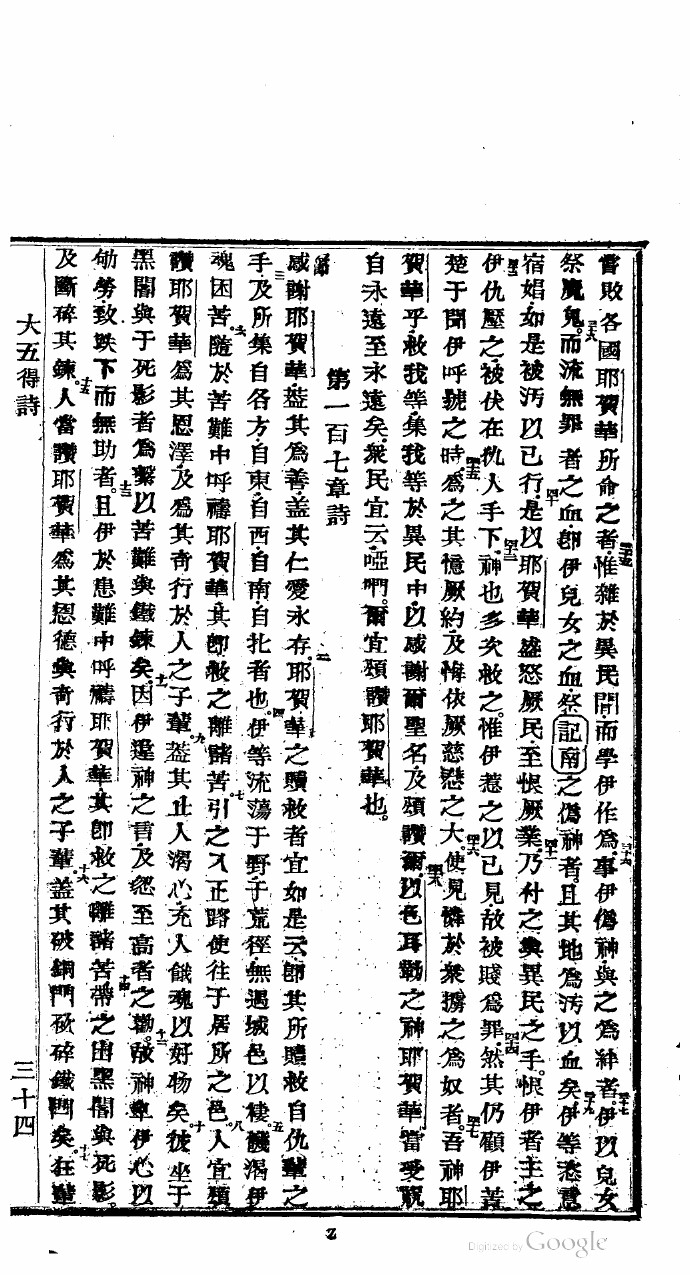 嘗敗各國耶賀華所命之者惟雜於異民間而學伊作為事伊偽神與之為絆者伊以兒女
祭魔鬼而流無罪者之血卽伊兒女之血祭記南之偽神者且其地為污以血矣伊等恣意
宿娼如是被污以已行是以耶賀華盛怒厥民至恨厥業乃付之與異民之手恨伊者主之
伊仇壓之被伏在仇人手下神也多次救之惟伊惹之以已見故被賤為罪然其仍顧伊苦
楚于聞伊呼號之時為之其憶厥約及悔依厥慈戀之大使見憐於衆擄之為奴者吾神耶
賀華乎救我等集我等於異民中以感謝爾聖名及頌讚爾以色耳勒之神耶賀華當受祝
自永遠至永遠矣衆民宜云啞們爾宜頌讚耶賀華也
第一百七章詩
感謝耶賀華葢其為善葢其仁愛永存耶賀華之贖救者宜如是云卽其所贖救自仇輩之
手及所集自各方自東自西自南自北者也伊等流蕩于野于荒徑無遇城邑以棲饑渴伊
魂困苦隨於苦難中呼禱耶賀華其卽救之離諸苦引之入正路使往于居所之邑人宜頌
讚耶賀華為其恩澤及為其奇行於人之子輩葢其止人渴心充人餓魂以好物矣彼坐于
黑闇與于死影者為繫以苦難與鐵鍊矣因伊違神之言及忽至高者之勸故神卑伊心以
劬勞致跌下而無助者且伊於患難中呼禱耶賀華其卽救之離諸苦帶之出黑闇與死影
及斷碎其鍊人當讚耶賀華為其恩德與奇行於人之子輩葢其破銅門砍碎鐵閂矣狂輩
大五得詩
三十四
Z
Digitized by Google